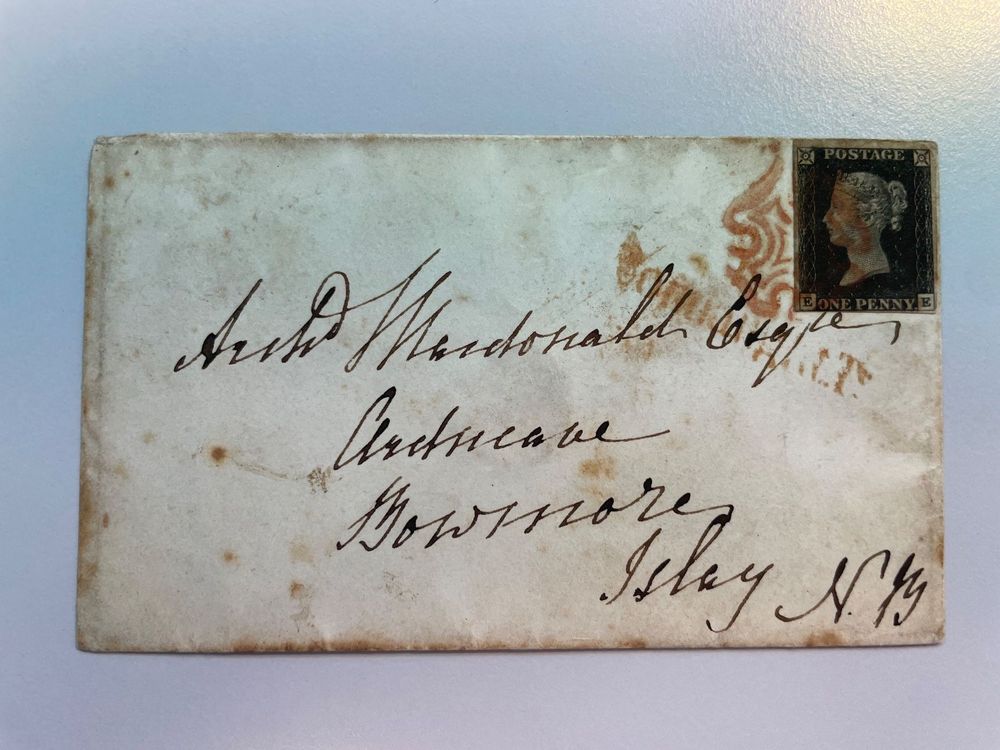 POSTAGE
E ONE PENNY E
Archd Macdonald Esqre
Ardnave
Bowmore
Islay N.B